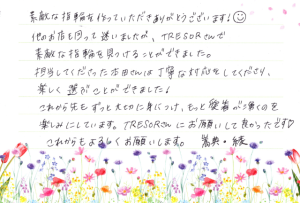 素敵な指輪を作っていただきありがとうございます!
他のお店も回って迷いましたが、TRESORさんで
素敵な指輪を見つけることができました。
担当してくださった古田さんは丁寧な対応をしてくださり、
楽しく選ぶことができました!
これから先もずっと大切に身につけ、もっと愛着が湧くのを
楽しみにしています。TRESORさんにお願いして良かったです♡
これからもよろしくお願いします。